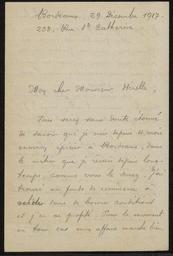 Bordeaux, 29 Décembre 1917.
238, Rue Ste Catherine
Mon cher Monsieur
Vous serez sans doute étonné
de savoir que je suis depuis
à Bordeaux, dans
le métier que je depuis long-
temps, comme vous le savez. J'ai
trouvé un fonds de commerce à
dans de bonnes conditions
et j'en ai profité. Pour le moment
mes affaires marchent bien